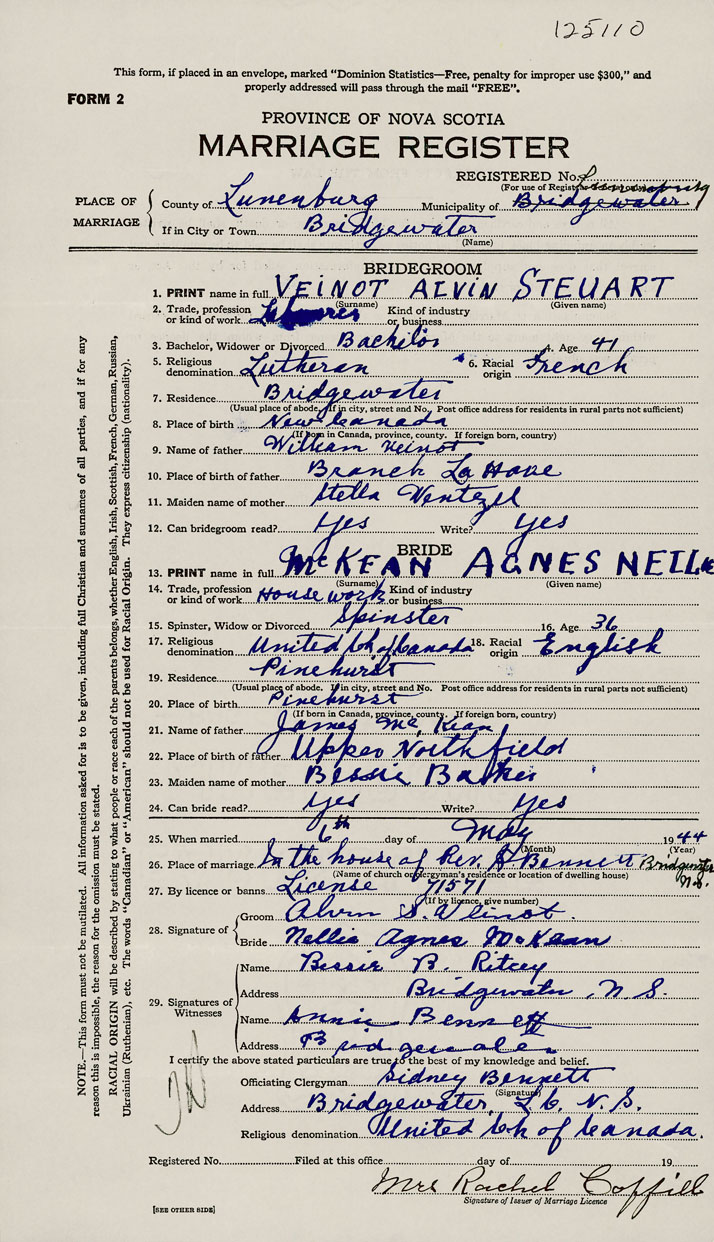 125110
This form, if placed in an envelope, marked "Dominion Statistics—Free, penalty for improper use $300," and
properly addressed will pass through the mail "FREE".
FORM 2
PROVINCE OF NOVA SCOTIA
MARRIAGE REGISTER
REGISTERED No.
(For use of Registrar General only)
PLACE OF MARRIAGE
County of Lunenburg Municipality of Bridgewater
If in City or Town Bridgewater
(Name)
BRIDEGROOM
1. PRINT name in full VEINOT ALVIN STEUART
(Surname) (Given name)
2. Trade, profession or kind of work Labourer Kind of industry or business
3. Bachelor, Widower or Divorced Bachelor 4. Age 41
5. Religious denomination Lutheran 6. Racial origin French
7. Residence Bridgewater
(Usual place of abode. If in city, street and No. Post office address for residents in rural parts not sufficient)
8. Place of birth New Canada
(If born in Canada, province, county. If foreign born, country)
9. Name of father William Veinot
10. Place of birth of father Branch La Have
11. Maiden name of mother Stella Wentzel
12. Can bridegroom read? Yes Write? Yes
BRIDE
13. PRINT name in full McKEAN AGNES NELLIE
(Surname) (Given name)
14. Trade, profession or kind of work House work Kind of industry or business
15. Spinster, Widow or Divorced Spinster 16. Age 36
17. Religious denomination United Ch of Canada 18. Racial origin English
19. Residence Pinehurst
(Usual place of abode. If in city, street and No. Post office address for residents in rural parts not sufficient)
20. Place of birth Pinehurst
(If born in Canada, province, county. If foreign born, country)
21. Name of father James Mc Kean
22. Place of birth of father Upper Northfield
23. Maiden name of mother Bessie
24. Can bride read? Yes Write? Yes
25. When married 6th day of May 1944
(Month) (Year)
26. Place of marriage In the house of Rev. S. Bennett Bridgewater N.S.
(Name of church or clergyman's residence or location of dwelling house)
27. By licence or banns License 71571
(If by licence, give number)
28. Signature of
Groom Alvin S. Veinot.
Bride Nellie Agnes McKean
29. Signatures of Witnesses
Name Bessie B. Ritcey
Address Bridgewater, N. S.
Name Annie Bennett
Address Bridgewater
I certify the above stated particulars are true to the best of my knowledge and belief.
Officiating Clergyman Sidney Bennett
(Signature)
Address Bridgewater, L. C. N. S.
Religious denomination United Ch of Canada.
Registered No. Filed at this office day of 19
Mrs Rachel Coffill
Signature of Issuer of Marriage Licence
[SEE OTHER SIDE]
NOTE.—This form must not be mutilated. All information asked for is to be given, including full Christian and surnames of all parties, and if for any
reason this is impossible, the reason for the omission must be stated.
RACIAL ORIGIN will be described by stating to what people or race each of the parents belongs, whether English, Irish, Scottish, French, German, Russian,
Ukrainian (Ruthenian), etc. The words "Canadian" or "American" should not be used for Racial Origin. They express citizenship (nationality).